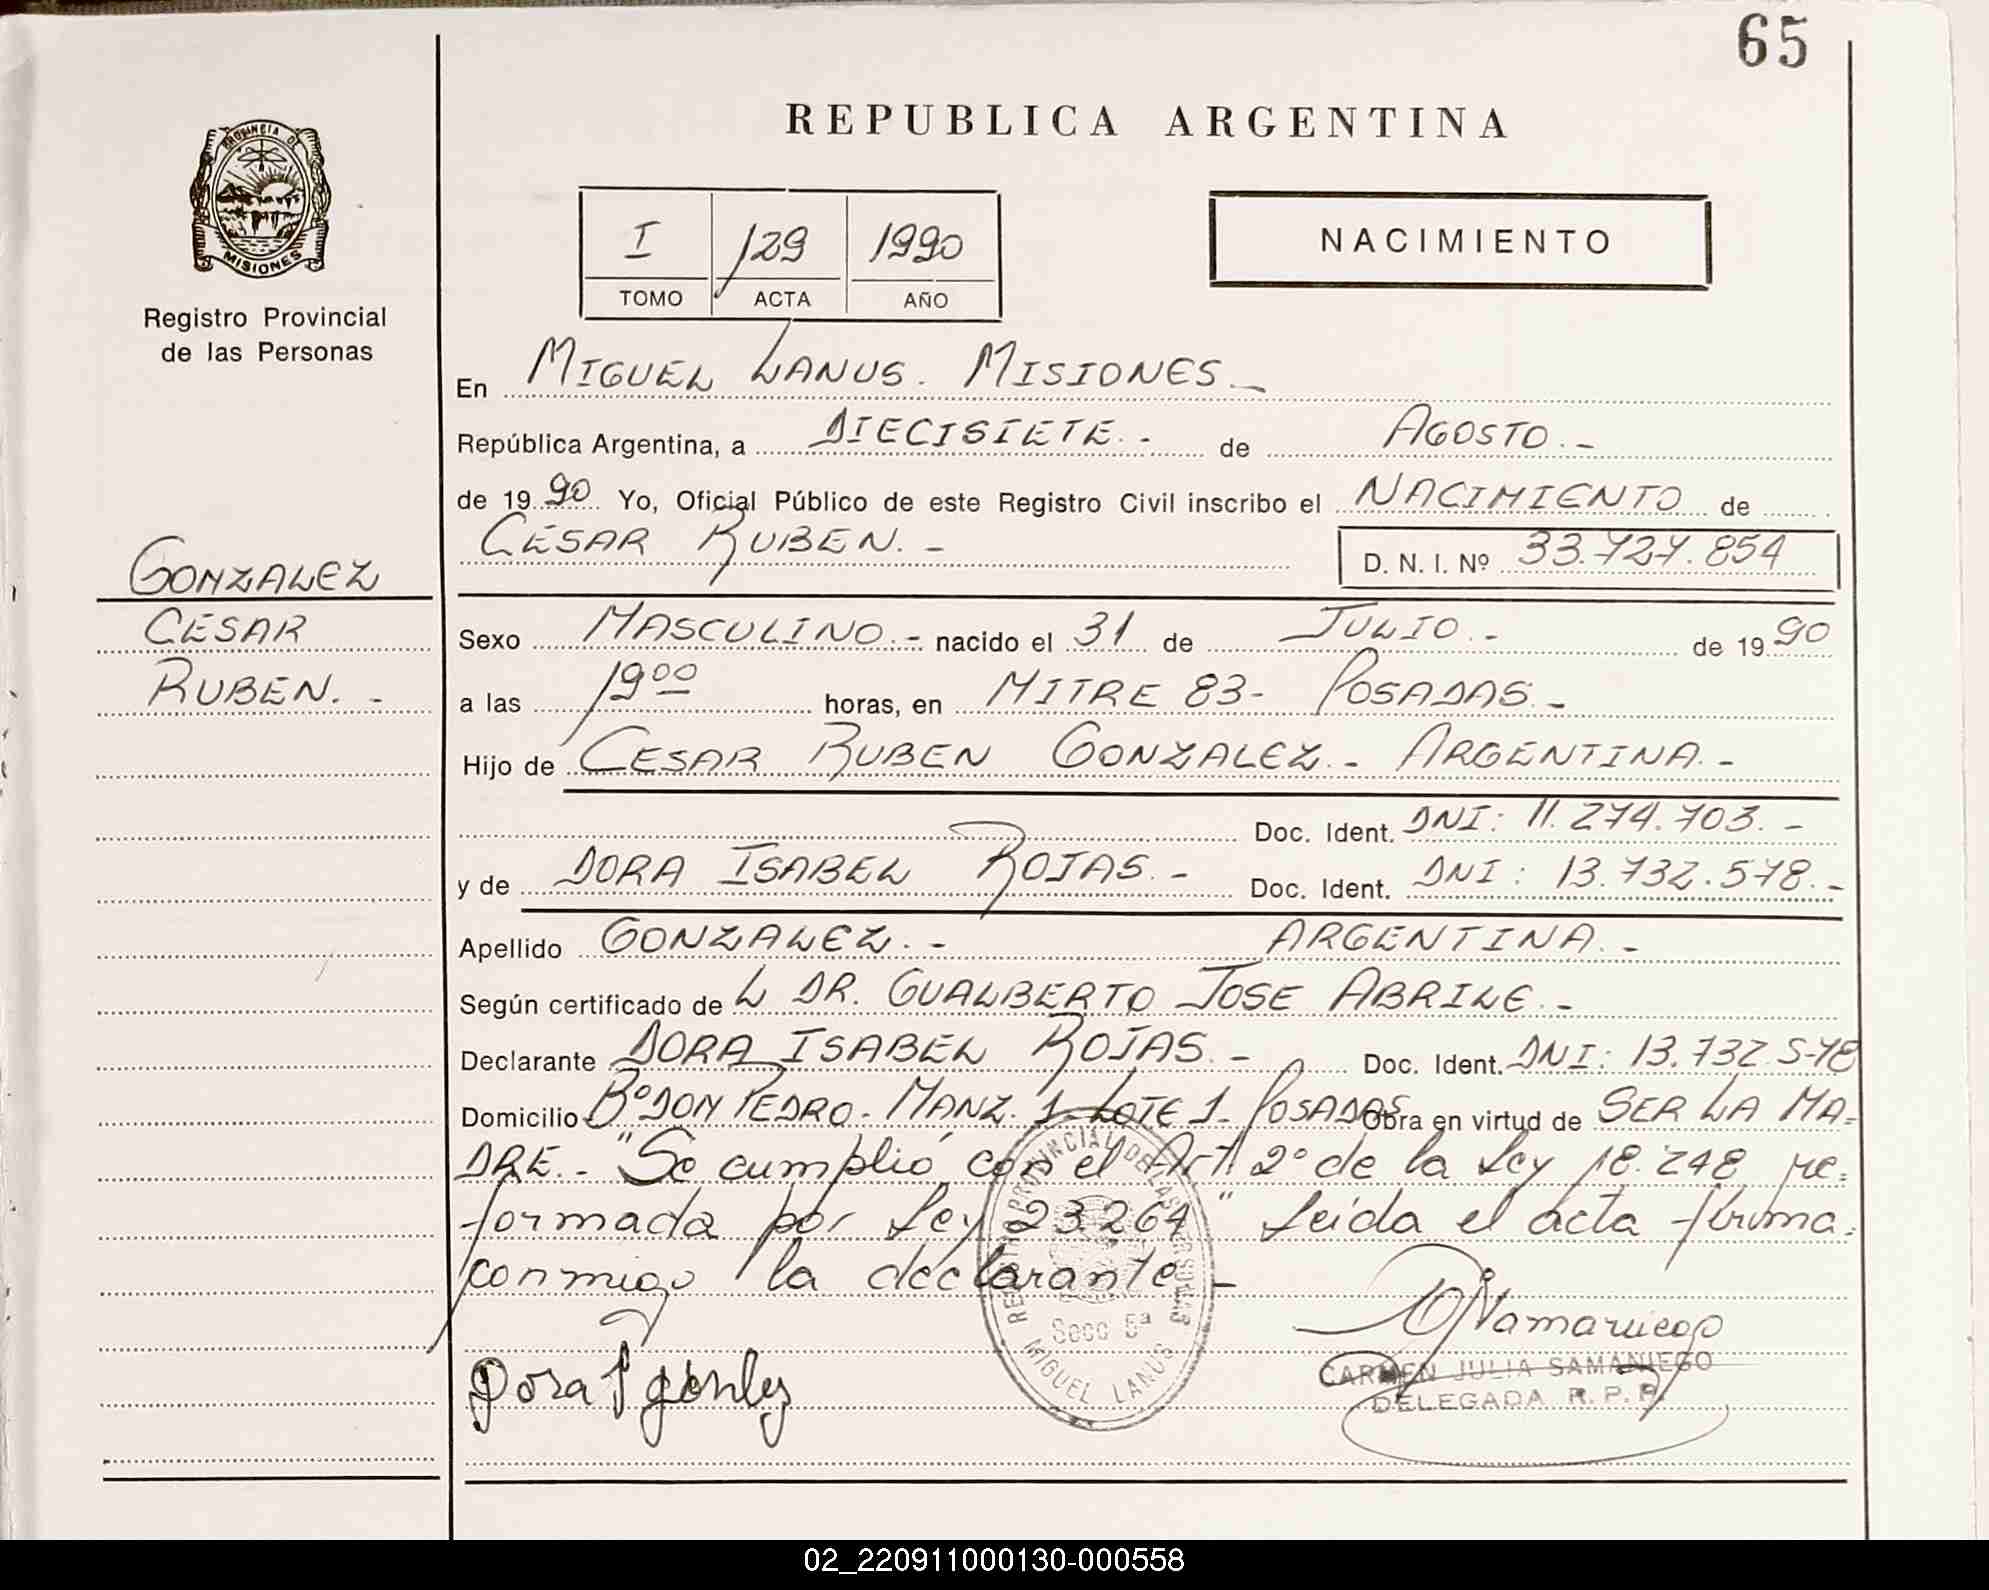 65
REPUBLICA ARGENTINA
PROVINCIA DE
MISIONES
Registro Provincial
de las Personas
I /129 1990
TOMO ACTA AÑO
NACIMIENTO
En MIGUEL LANUS. MISIONES.-
República Argentina, a DIECISIETE.- de AGOSTO.-
de 1990 Yo, Oficial Público de este Registro Civil inscribo el NACIMIENTO de
CESAR RUBEN.-
D. N. I. Nº 33.727.854
GONZALEZ
CESAR
RUBEN.-
Sexo MASCULINO.- nacido el 31 de JULIO.- de 1990
a las 19 00 horas, en MITRE 83- POSADAS.-
Hijo de CESAR RUBEN GONZALEZ.- ARGENTINA.-
Doc. Ident. DNI: 11.274.703.-
y de DORA ISABEL ROJAS.- Doc. Ident. DNI: 13.732.578.-
Apellido GONZALEZ.- ARGENTINA.-
Según certificado de L DR. GUALBERTO JOSE ABRILE.-
Declarante DORA ISABEL ROJAS.- Doc. Ident. DNI: 13.732.578
Domicilio Bº DON PEDRO- MANZ. 1- LOTE 1- POSADAS Obra en virtud de SER LA MA-
DRE.- "Se cumplió con el Art. 2º de la Ley 18.248 re-
formada por Ley 23.264" Leida el acta firma
conmigo la declarante.-
REGISTRO PROVINCIAL DE LAS PERSONAS
Secc 5ª
MIGUEL LANUS
Dora
CARMEN JULIA SAMANIEGO
DELEGADA R. P. P.
02_220911000130-000558